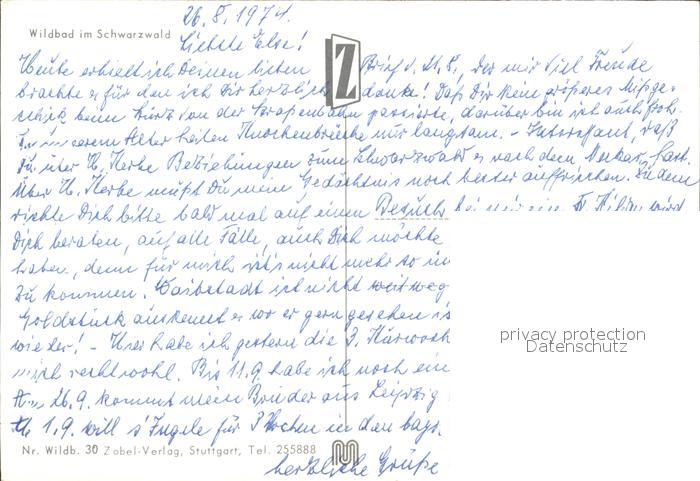 26. 8. 1974.
Wildbad im Schwarzwald
Liebste Else!
Heute erhielt ich Deinen lieben Brief v. 21. 8., der mir viel Freude
brachte u für den ich Dir herzlich danke! Daß Dir kein größeres Mißge-
schick beim Sturz von der Straßenbahn passierte, darüber bin ich auch froh.
In unserem Alter heilen Knochenbrüche nur langsam. - Interessant, daß
Du über H. Beziehungen zum Schwarzwald u nach dem Neckar hast.
Über H. mußt Du mein Gedächtnis noch besser auffrischen. Zudem
richte Dich bitte bald mal auf einen Besuch bei mir ein. wird
Dich beraten, auf alle Fälle, auch Dich möchte
haben, denn für mich ist's nicht mehr so
zu kommen. weit weg
auskennt u wo er gern gesehen is
wieder! - Hier habe ich gestern die 3.
mich recht wohl. Bis 11.9. habe ich noch ein
Am 26.9. kommt mein Bruder aus Leipzig
1.9. will s'Ingele für 3 Wochen in den bayr.
Nr. Wildb. 30 Zobel-Verlag, Stuttgart, Tel. 255888
herzliche Grüße
privacy protection
Datenschutz